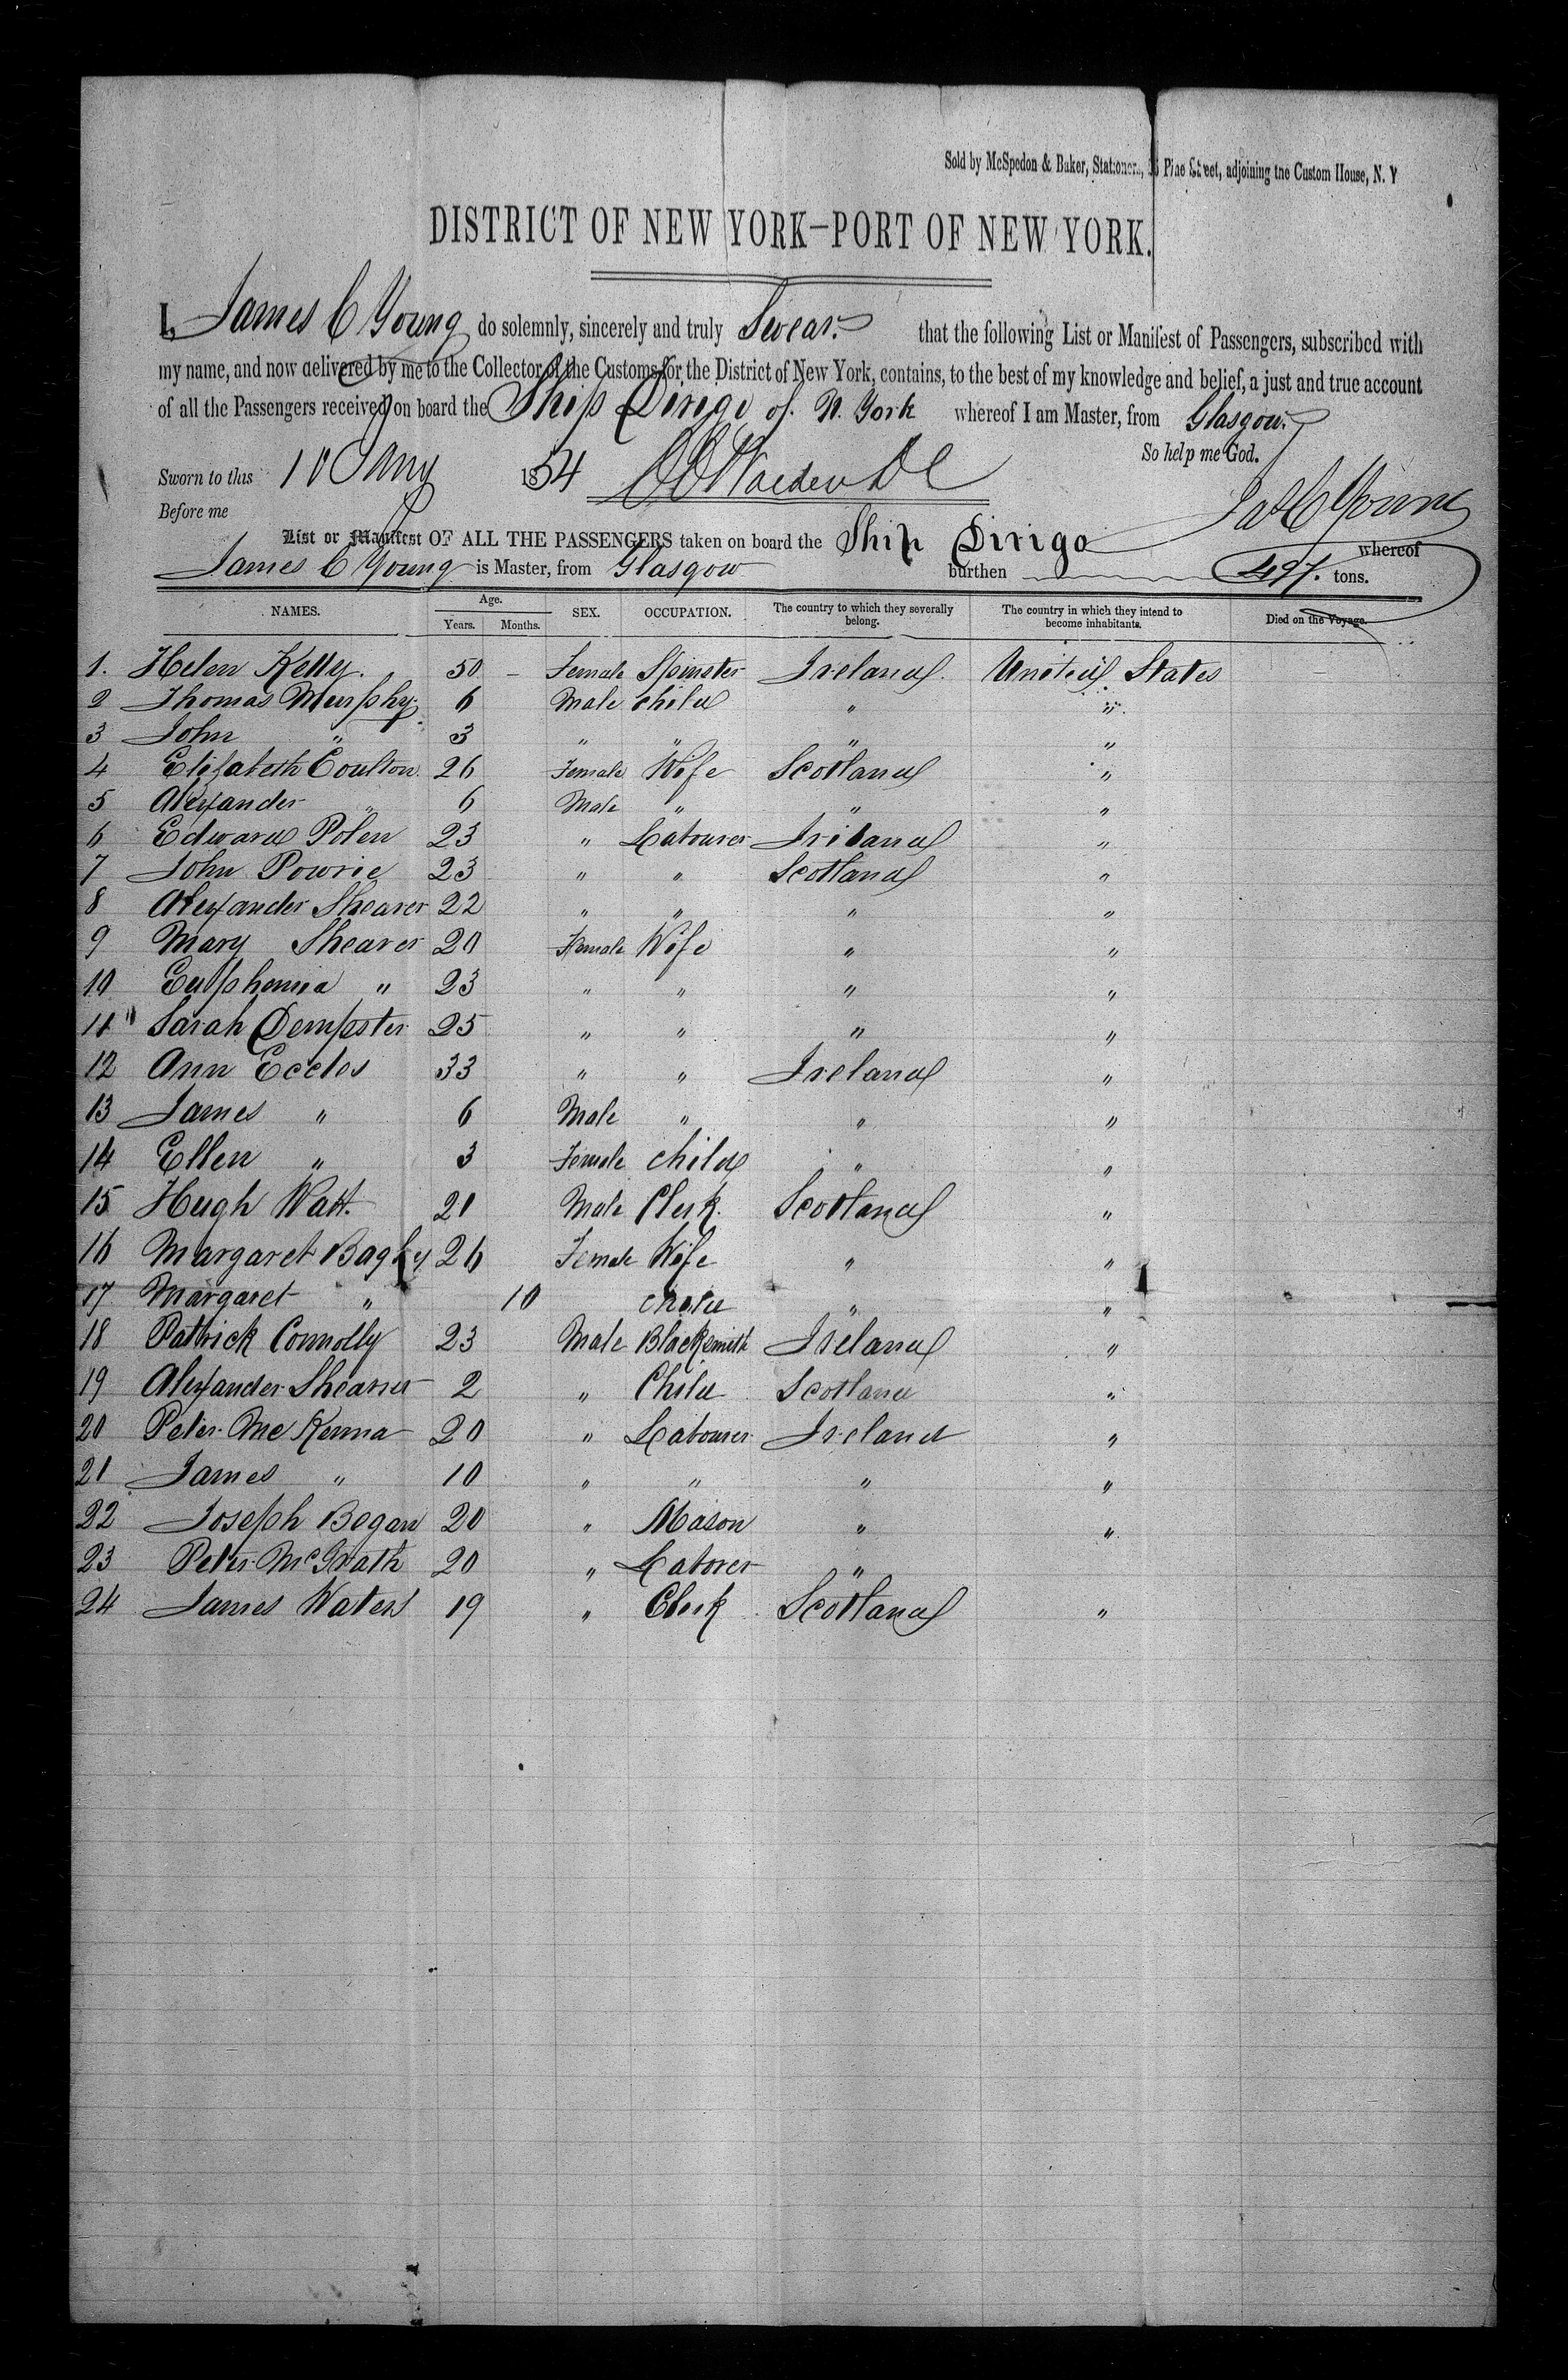 Sold by McSpedon & Baker, Stationers, Pine Street, adjoining the Custom House, N. Y
DISTRICT OF NEW YORK—PORT OF NEW YORK.
I, James C Young do solemnly, sincerely and truly Swear. that the following List or Manifest of Passengers, subscribed with
my name, and now delivered by me to the Collector of the Customs for the District of New York, contains, to the best of my knowledge and belief, a just and true account
of all the Passengers received on board the Ship Dirigo of N. York whereof I am Master, from Glasgow.
So help me God.
Sworn to this 10 1854
Jas C Young
Before me
List or Manifest OF ALL THE PASSENGERS taken on board the Ship Dirigo whereof
James C Young is Master, from Glasgow burthen 497. tons.
NAMES. Age. Years. Months. SEX. OCCUPATION. The country to which they severally belong. The country in which they intend to become inhabitants. Died on the Voyage.
1. Helen Kelly. 50 – Female Spinster Ireland United States
2 Thomas Murphy 6 Male child " "
3 John " 3 " " " "
4 Elizabeth Coulton 26 Female Wife Scotland "
5 Alexander " 6 Male " " "
6 Edward Polen 23 " Labourer Ireland "
7 John Powrie 23 " " Scotland "
8 Alexander Shearer 22 " " " "
9 Mary Shearer 20 Female Wife " "
10 Eusphemia " 23 " " " "
11 " Sarah Dempster 25 " " " "
12 Ann Eccles 33 " " Ireland "
13 James " 6 Male " " "
14 Ellen " 3 Female child " "
15 Hugh Watt. 21 Male Clerk. Scotland "
16 Margaret Bagley 26 Female Wife " "
17 Margaret " 10 child " "
18 Patrick Connolly 23 Male Blacksmith Ireland "
19 Alexander Shearer 2 " Child Scotland "
20 Peter McKenna 20 " Labourer Ireland "
21 James " 10 " " " "
22 Joseph Began 20 " Mason " "
23 Peter McGrath 20 " Laborer "
24 James Waters 19 " Clerk Scotland "